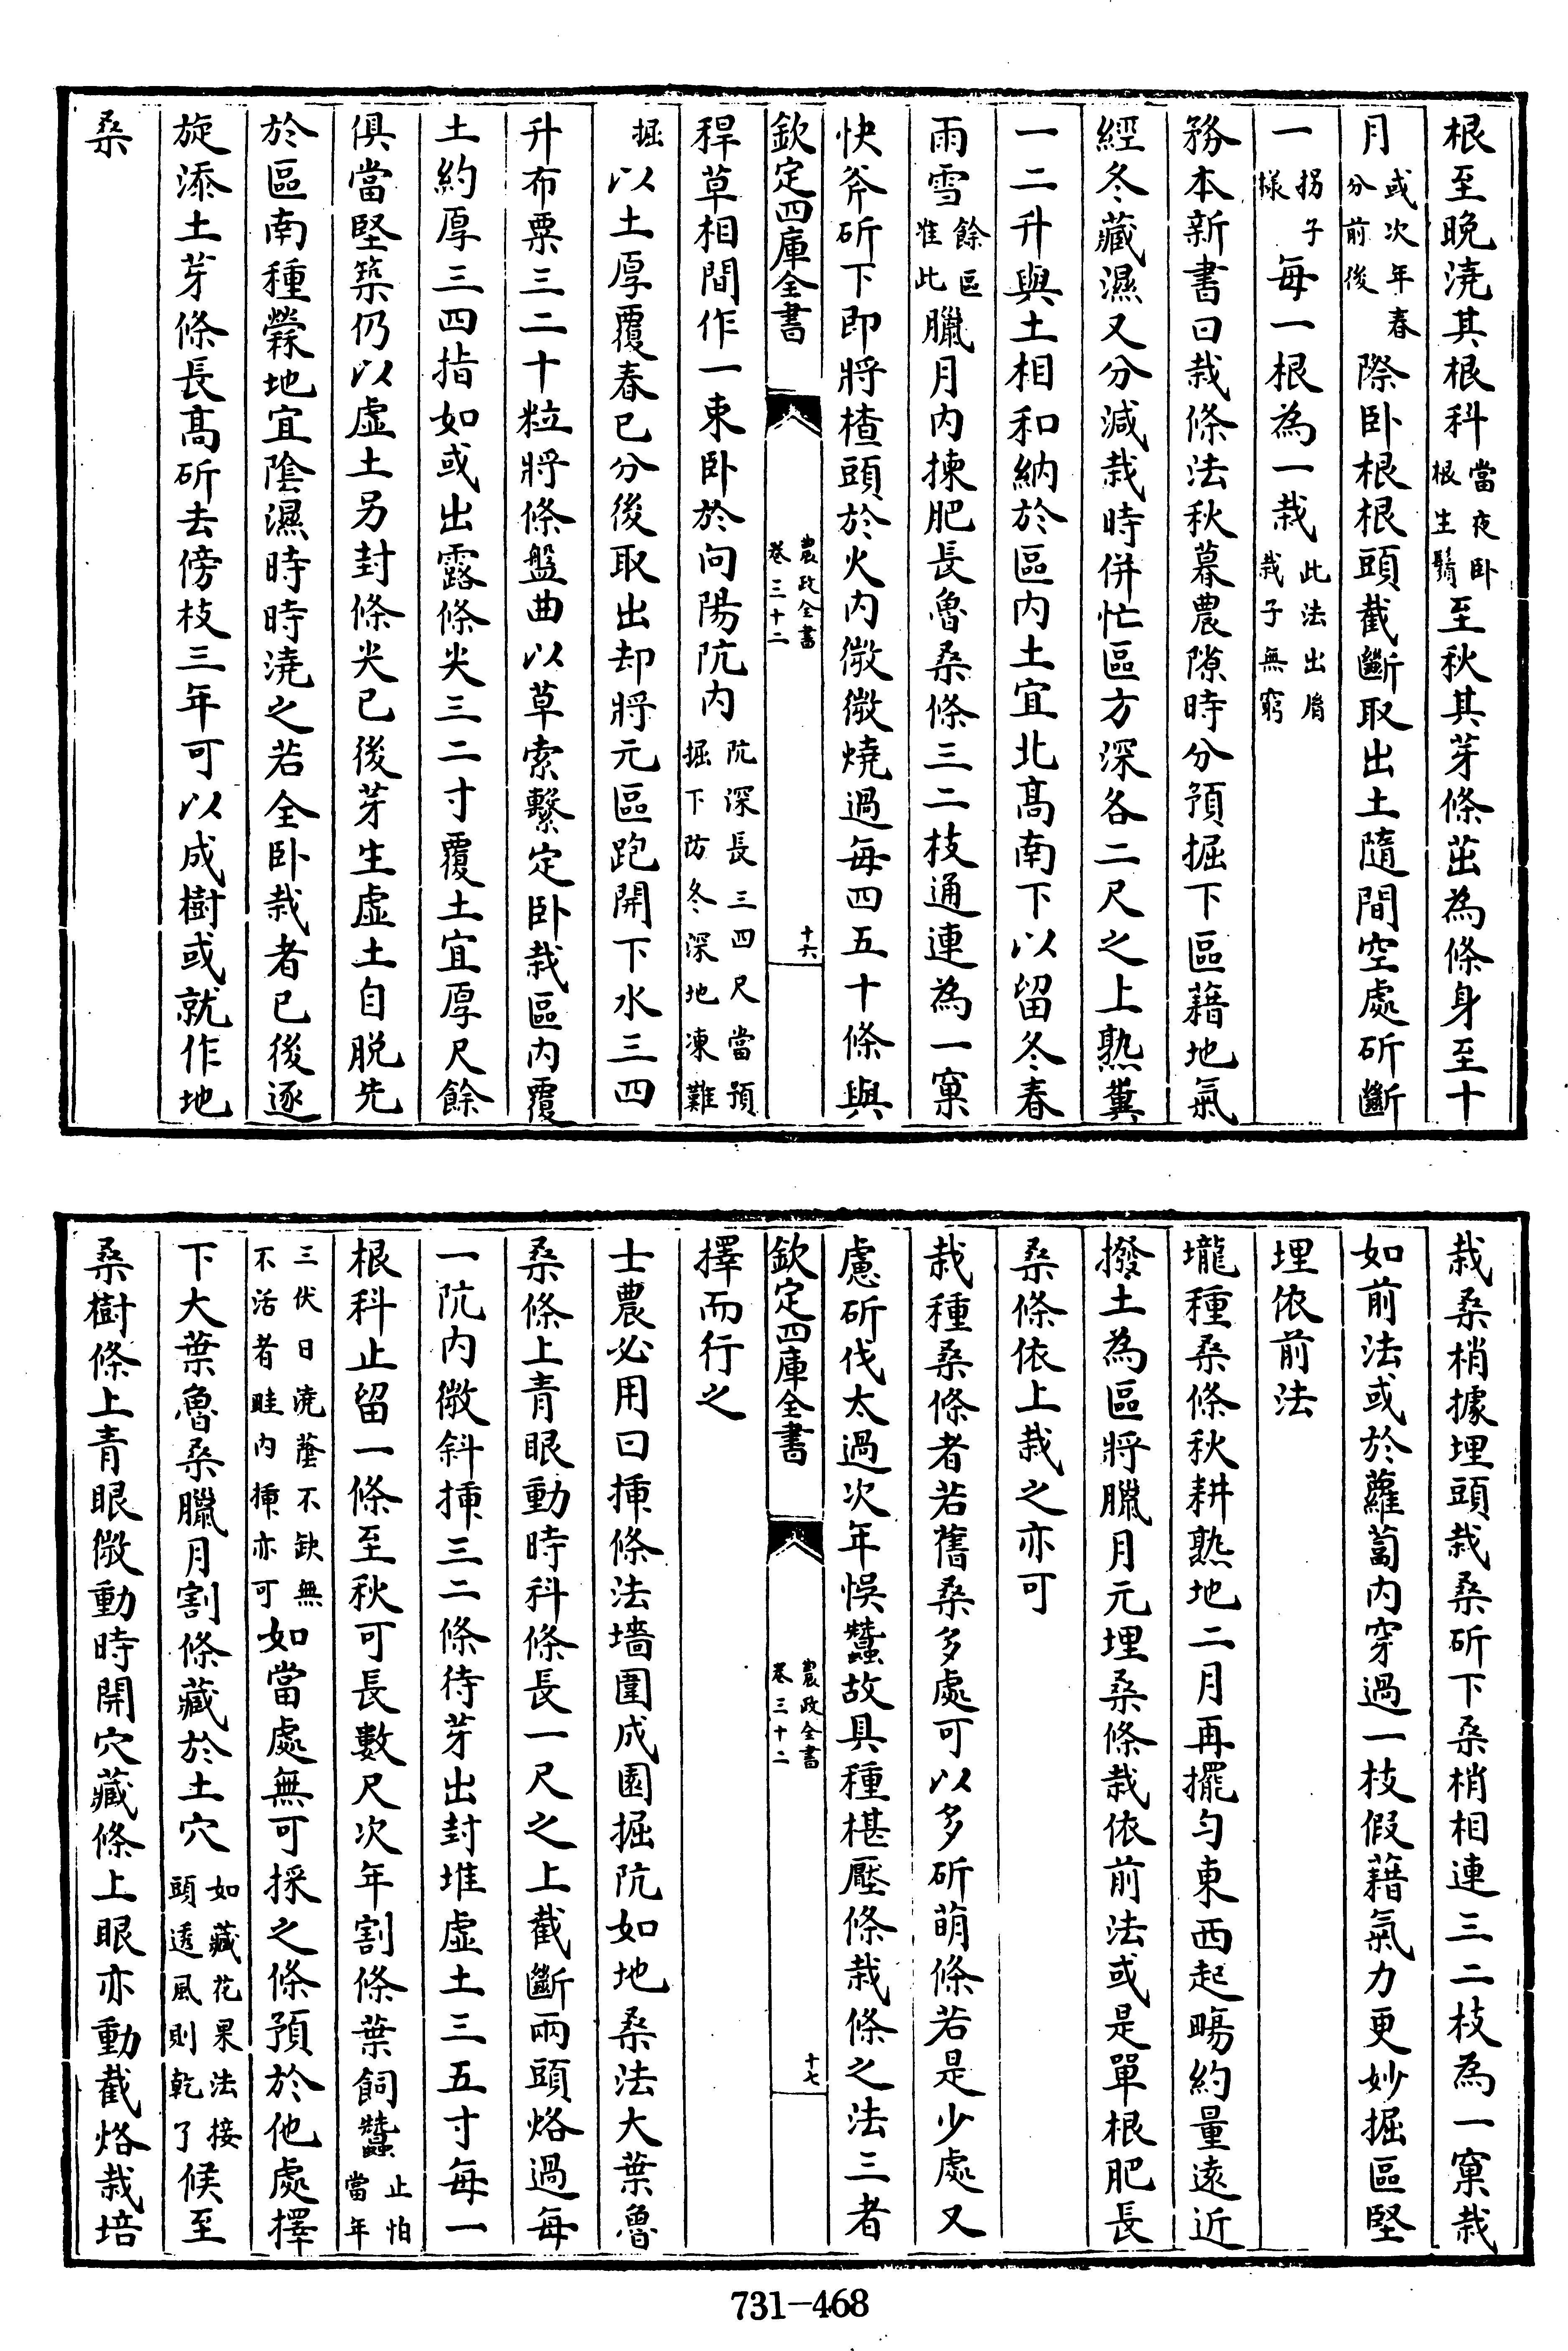 根至晚澆其根科當夜卧根生鬚至秋其芽條茁為條身至十
月或次年春分前後際卧根根頭截斷取出土隨間空處斫斷
一拐子様每一根為一栽此法出胤栽子無窮
務本新書曰栽條法秋暮農隙時分預掘下區藉地氣
經冬藏濕又分減栽時併忙區方深各二尺之上熟糞
一二升與土相和納於區内土宜北髙南下以留冬春
雨雪餘區准此臘月内揀肥長魯桑條三二枝通連為一窠
快斧斫下即將楂頭於火内微微燒過每四五十條與
欽定四庫全書
農政全書
卷三十二
十六
稈草相間作一束卧於向陽阬内阬深長三四尺當預掘下防冬深地凍難
掘以土厚覆春已分後取出却將元區跑開下水三四
升布粟三二十粒將條盤曲以草索繫定卧栽區内覆
土約厚三四指如或出露條尖三二寸覆土宜厚尺餘
俱當堅築仍以虚土另封條尖已後芽生虚土自脱先
於區南種檾地宜隂濕時時澆之若全卧栽者已後逐
旋添土芽條長髙斫去傍枝三年可以成樹或就作地
桑
栽桑梢據埋頭栽桑斫下桑梢相連三二枝為一窠栽
如前法或於蘿蔔内穿過一枝假藉氣力更妙掘區堅
埋依前法
壠種桑條秋耕熟地二月再擺匀東西起暘約量逺近
撥土為區將臘月元埋桑條栽依前法或是單根肥長
桑條依上栽之亦可
栽種桑條者若舊桑多處可以多斫萌條若是少處又
慮斫伐太過次年悞蠶故具種椹壓條栽條之法三者
欽定四庫全書
農政全書
卷三十二
十七
擇而行之
士農必用曰挿條法墻圍成園掘阬如地桑法大葉魯
桑條上青眼動時科條長一尺之上截斷兩頭烙過每
一阬内微斜挿三二條待芽出封堆虚土三五寸每一
根科止留一條至秋可長數尺次年割條葉飼蠶止怕當年
三伏日澆蔭不缺無不活者畦内挿亦可如當處無可採之條預於他處擇
下大葉魯桑臘月割條藏於土穴如藏花果法接頭透風則乾了候至
桑樹條上青眼微動時開穴藏條上眼亦動截烙栽培
731-468